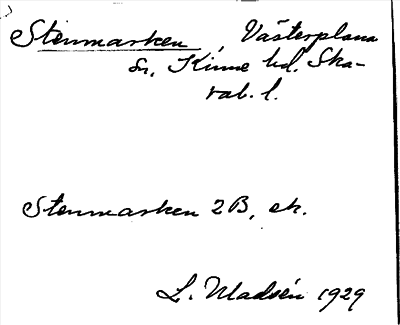 Stenmarken, Västerplana
sn, Kinne hd. Ska-
rab. l.
Stenmarken 2B, ek.
L. Madsén 1929